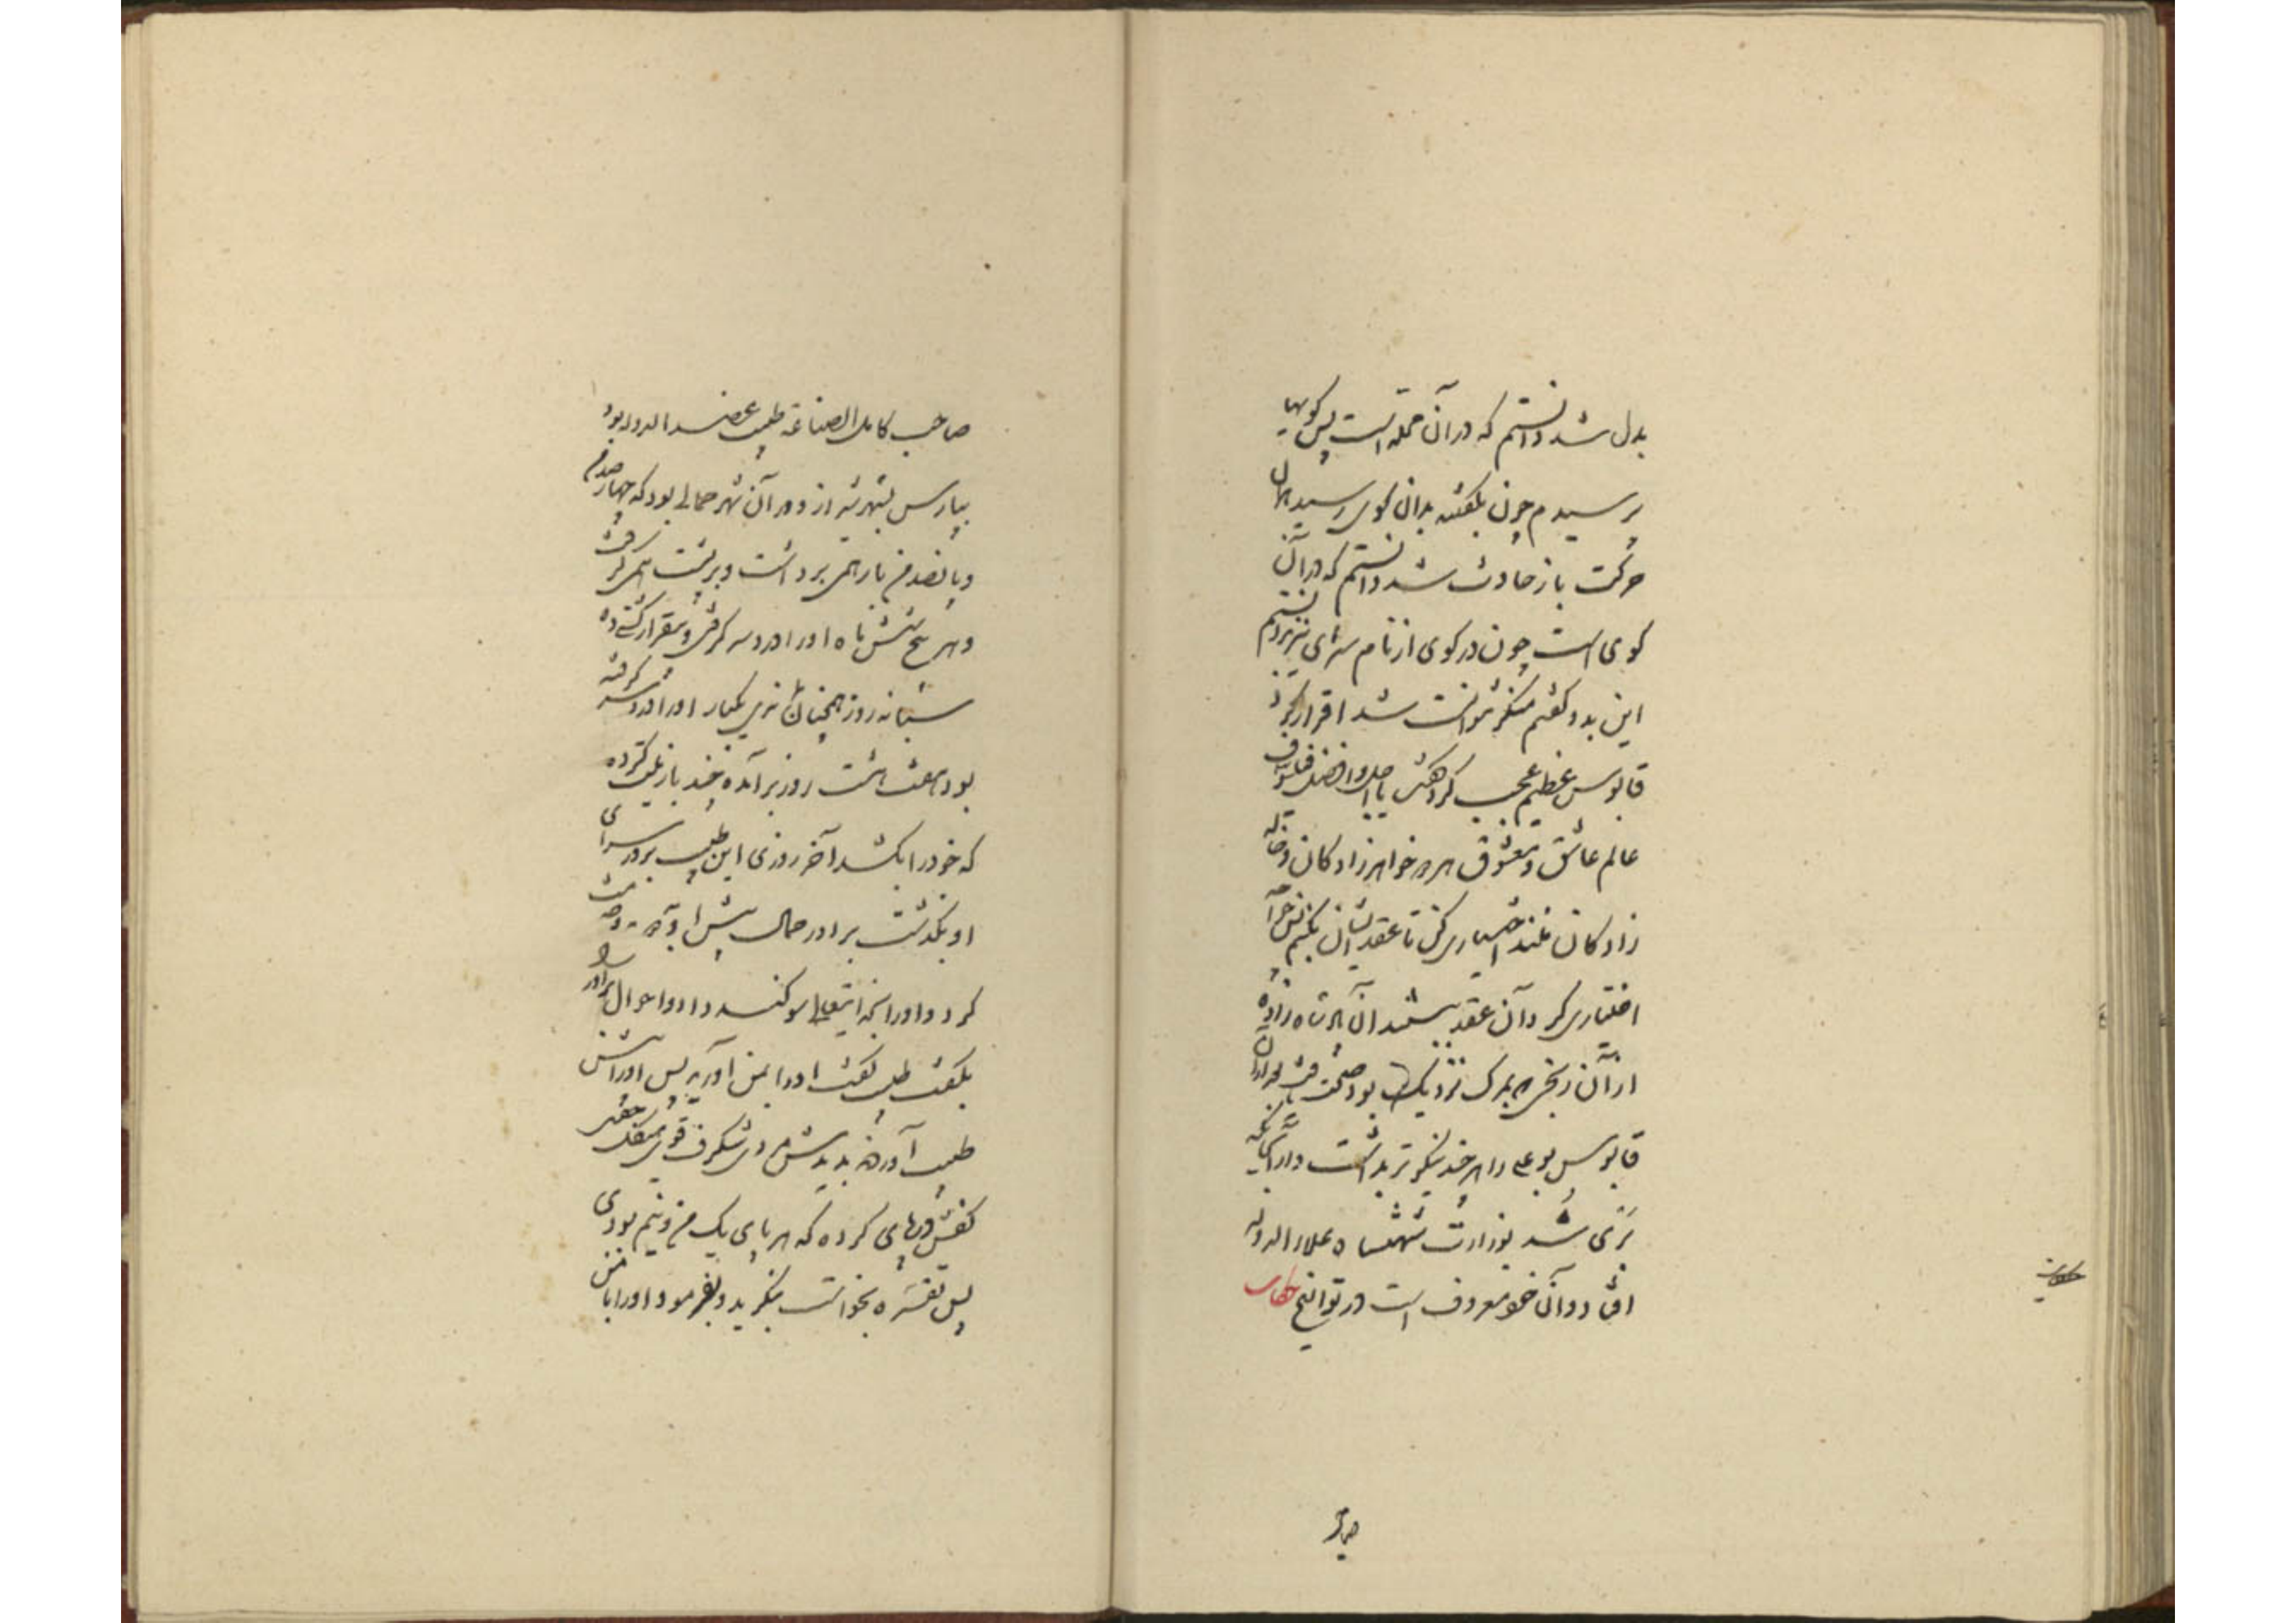 بدل شد دانستم که در آن محله است پس کویها
پرسیدم چون بگفتند بدان کوی رسید همان
حرکت باز حادث شد دانستم که در آن
کوی است چون در کوی از نام سرای نیز بدانستم
این بدو گفتم منکر نتوانست شد اقرار کرد
قابوس عظیم عجب کرد گفت یا اجل و افضل فیلسوف
عالم عاشق و معشوق هر دو خواهر زادگان و خاله
زادگان منند اختیاری کن تا عقد ایشان بکنیم پس خواجه
اختیاری کرد و آن عقد ببستند آن پادشاه زاده
از آن رنجی که بمرگ نزدیک بود صحت یافت بعد از آن
قابوس بوعلی را هر چند نیکوتر بداشت و از آنجا
بری شد بوزارت شهنشاه علاء الدوله
افتاد و آن خود معروف است در تواریخ حکایت
صاحب
صاحب کامل الصناعة طبیب عضد الدوله بود
بپارس بشهر شیراز و در آن شهر حمالی بود که چهارصد من
و پانصد من بار همی برداشت و بر پشت همی گرفت
و هر پنج شش ماه او را درد سر گرفتی و بیقرار گشتی ده
شبانه روز همچنان بماندی یکبار او را درد سر گرفته
بود هفت هشت روز برآمده چند بار نیت کرده
که خود را بکشد آخر روزی این طبیب بر در سرای
او بگذشت برادر حمال پیش او آمد و خدمت
کرد و او را بخدایتعالی سوگند داد و احوال برادر او
بگفت طبیب گفت او را بمن آورید پس او را پیش
طبیب آوردند بدیدش مردی شگرف قوی هیکل جفتی
کفش در پای کرده که هر پای یک من و نیم بودی
پس تفسره بخواست بنگرید و بفرمود او را با من